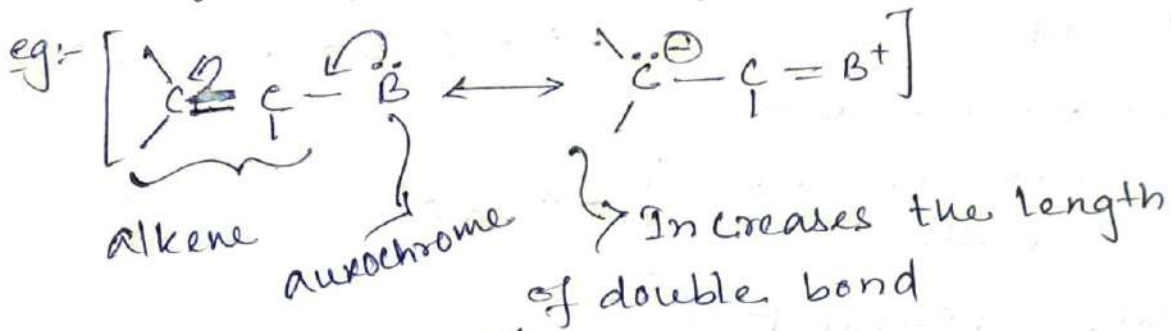 eg:- [ C = C - B̈ ⟷ C̈⊖ - C = B⁺ ]
alkene
auxochrome
Increases the length
of double bond